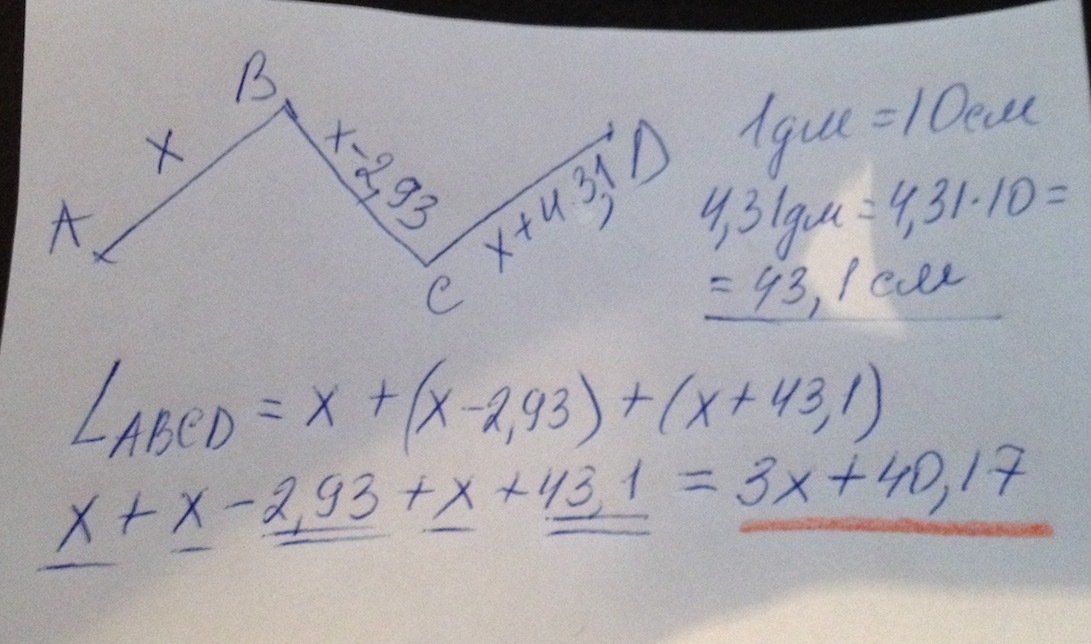 B
x
x-2,93
A
C
x+43,1
D
1дм = 10см
4,31дм = 4,31·10 =
= 43,1 см
L ABCD = x + (x-2,93) + (x+43,1)
x + x - 2,93 + x + 43,1 = 3x + 40,17